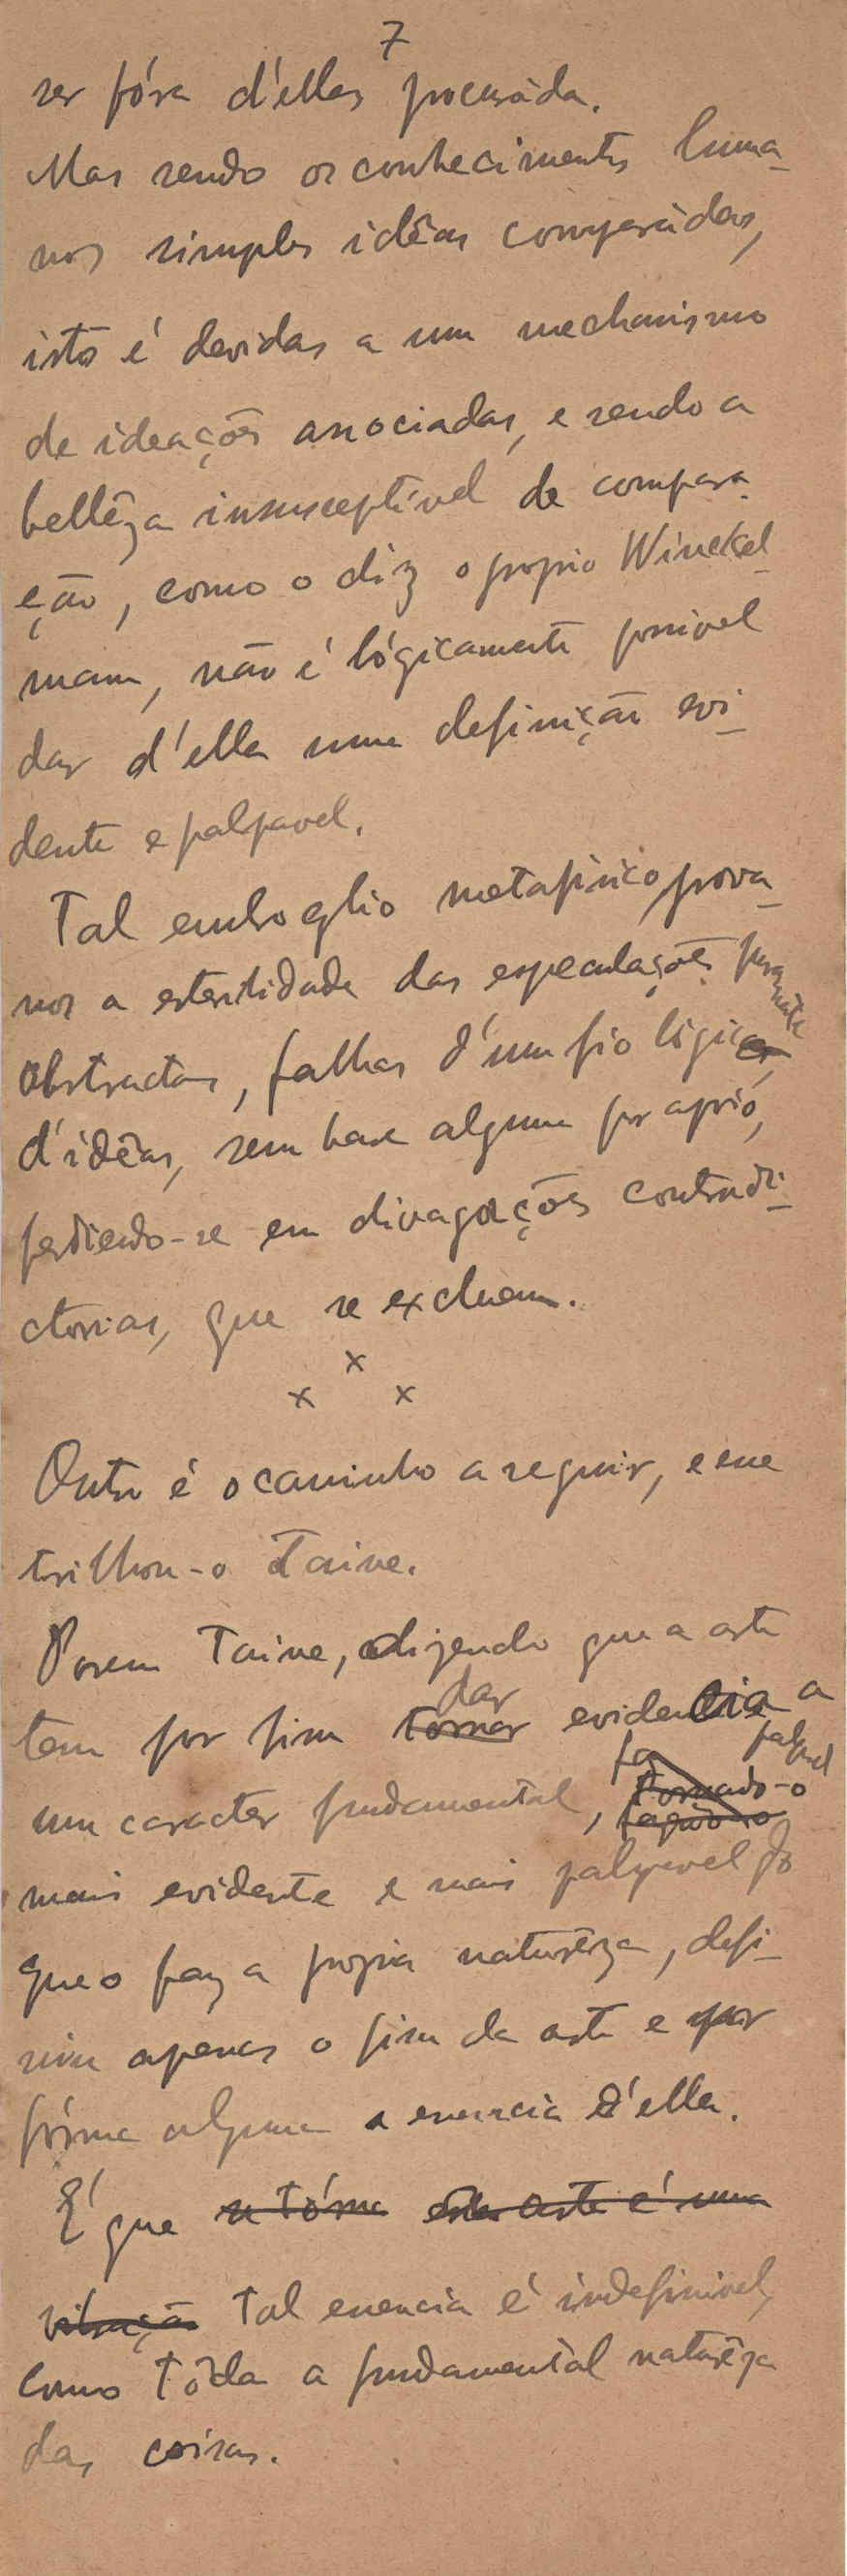 7
ser fóra d'ellas procuráda.
Mas sendo os conhecimentos huma-
nos simples idêas comparádas,
isto é devidas a um mechanismo
de ideações associadas, e sendo a
bellêza insusceptível de compara-
ção, como o diz o proprio Winckel-
mann, não é lógicamente possivel
dar d'ella uma definição evi-
dente e palpavel.
Tal embroglio metafisico prova-
nos a esterilidade das especulações puramente
abstractas, falhas d'um fio lógico
d'idêas, sem base alguma por
perdendo-se em divagações contradi-
ctorias, que se excluem.
x
x x
Outro é o caminho a seguir, e
trilhou-o Taine.
Porem Taine, dizendo que a arte
dar
tem por fim tornar evidencia a
palpavel
um caracter fundamental, tornado-o
mais evidente e mais palpavel do
que o faz a propia naturêza, defi-
niu apenas o fim da arte e por
fórma alguma a essencia d'ella.
É que se tórna arte é uma
vibração tal essencia é indefinivel,
como tôda a fundamental naturêza
das coisas.